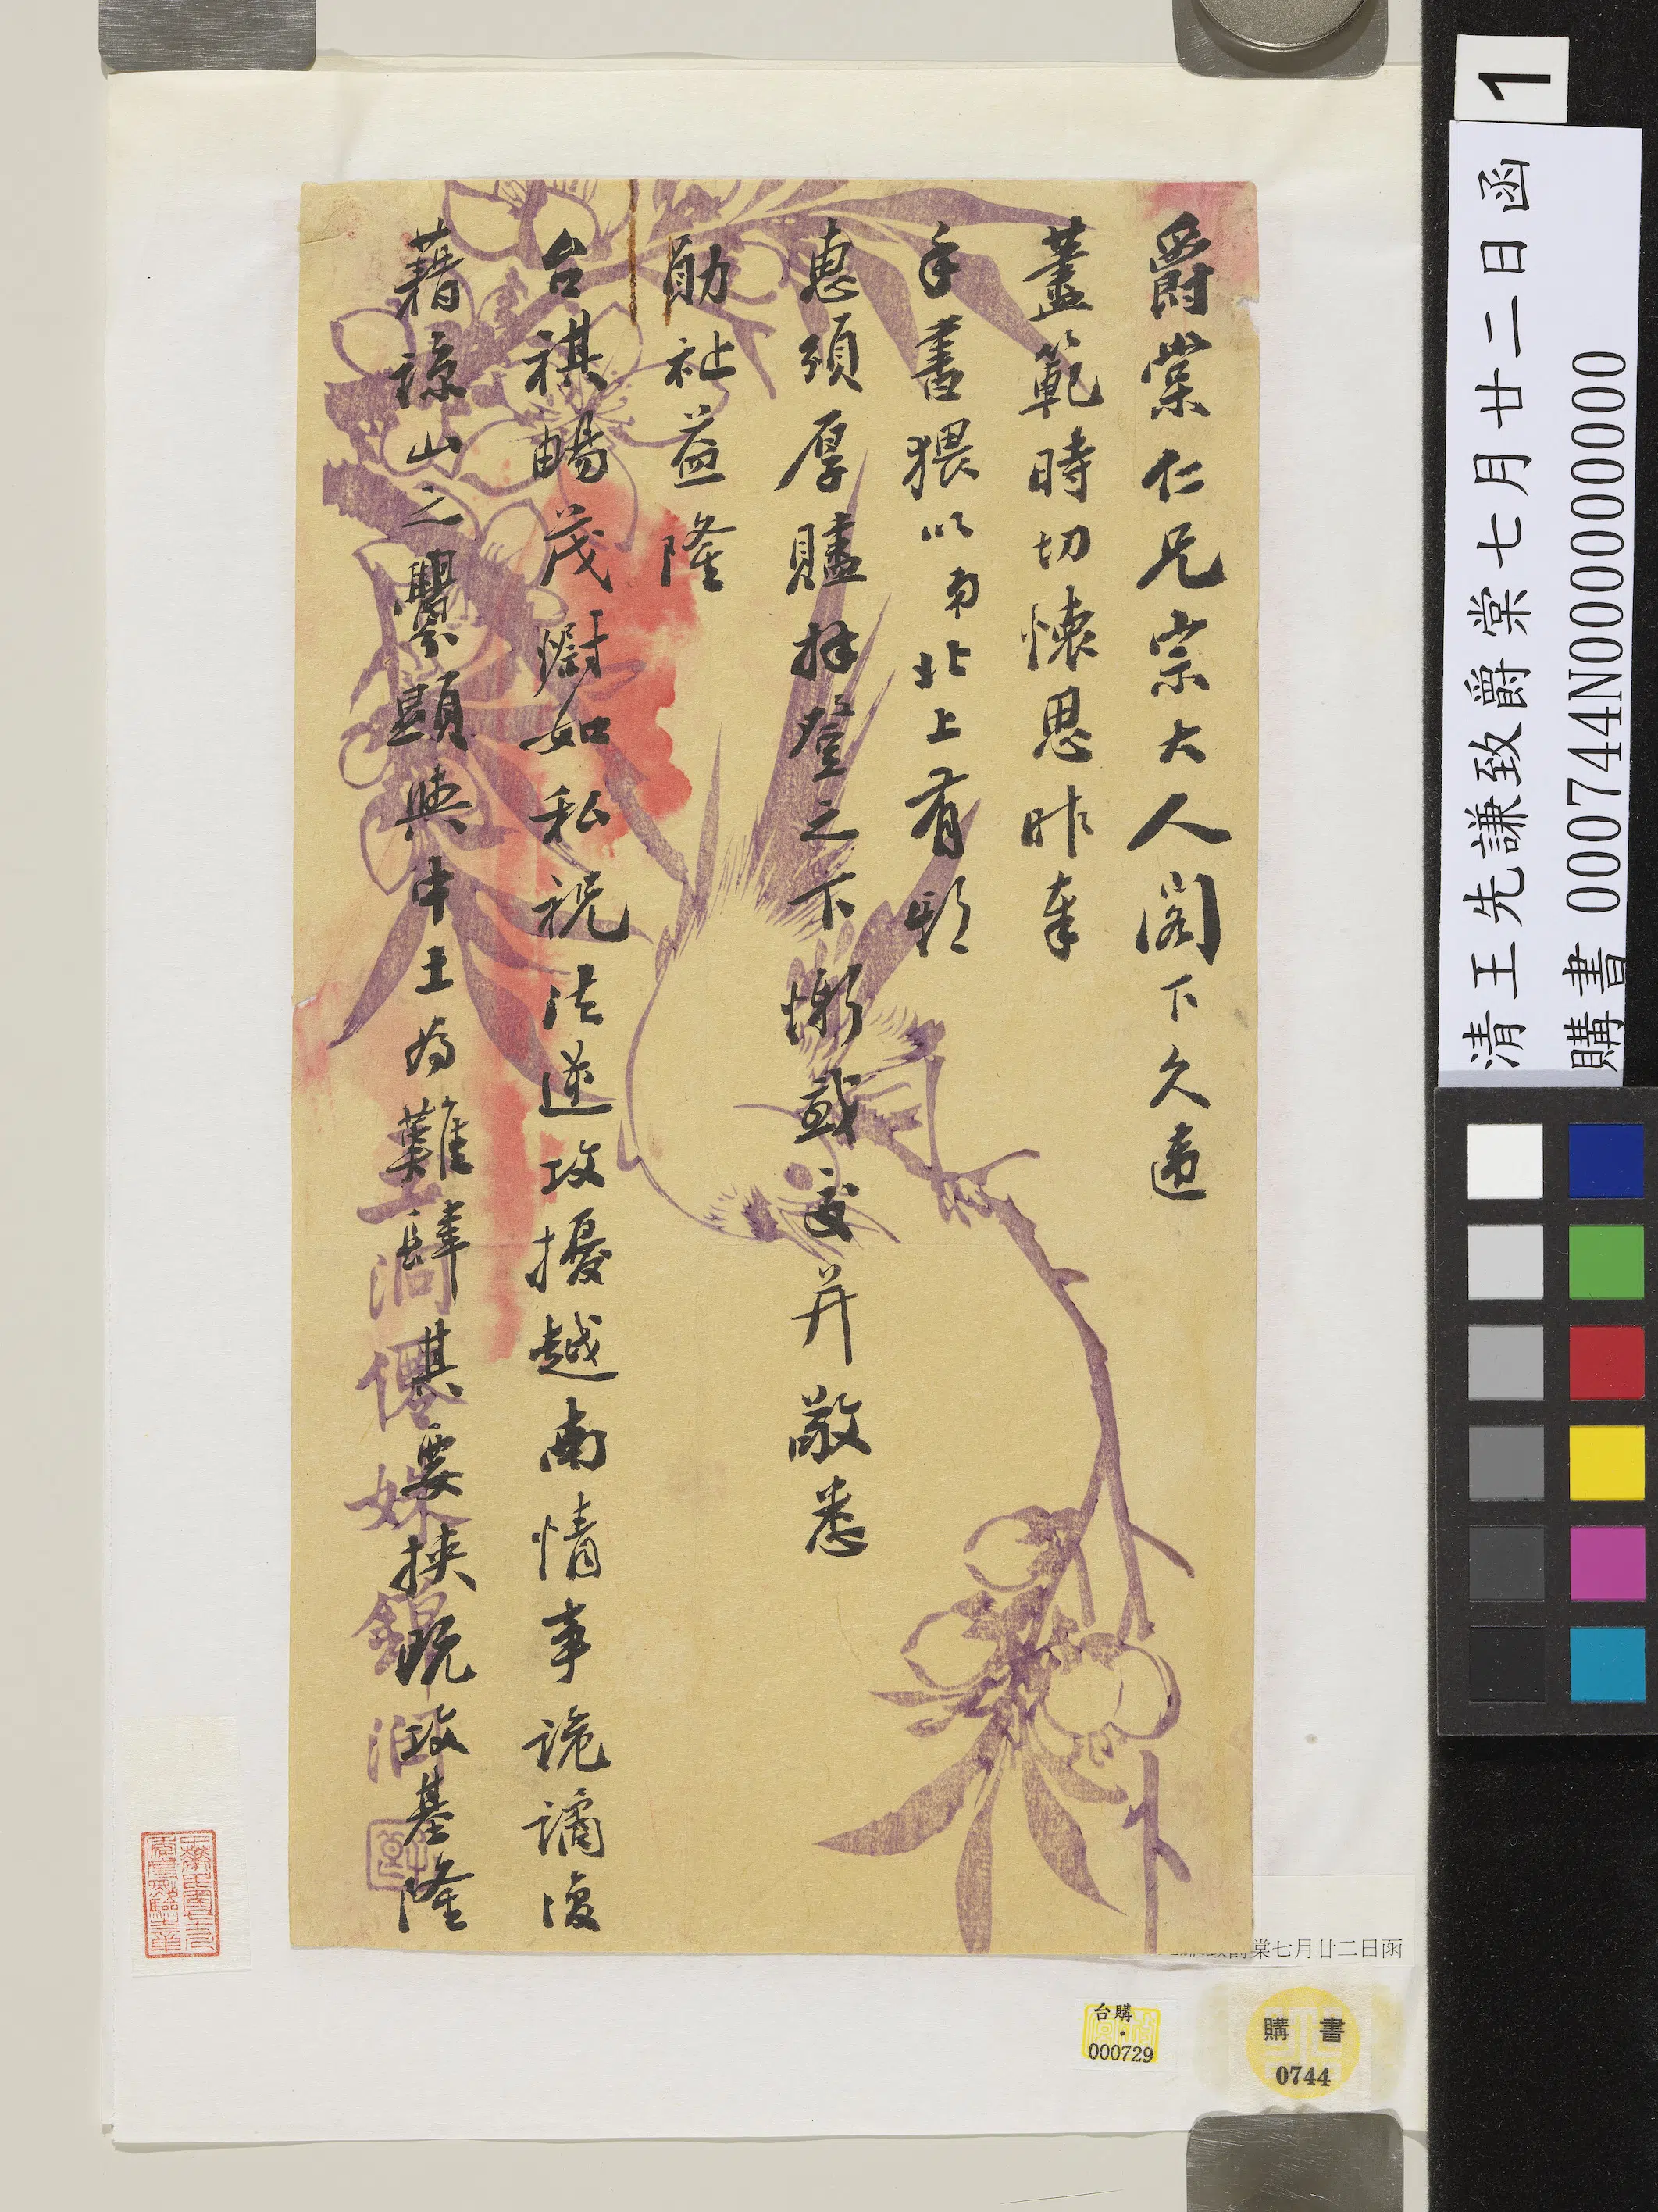 爵棠仁兄宗大人閣下久違
藎範時切懷思昨奉
手書猥以南北上有
惠頒厚賮拜登之下慚感交并敬悉
勛祉益隆
台祺暢茂
如私祝法逆攻擾越南情事詭譎復
藉諒山之釁顯與中土為難肆其要挾既攻基隆
玉洞僊姝錦
清王先謙致爵棠七月廿二日函
購書 000744N000000000
1
棠七月廿二日函
台購
000729
購 書
0744